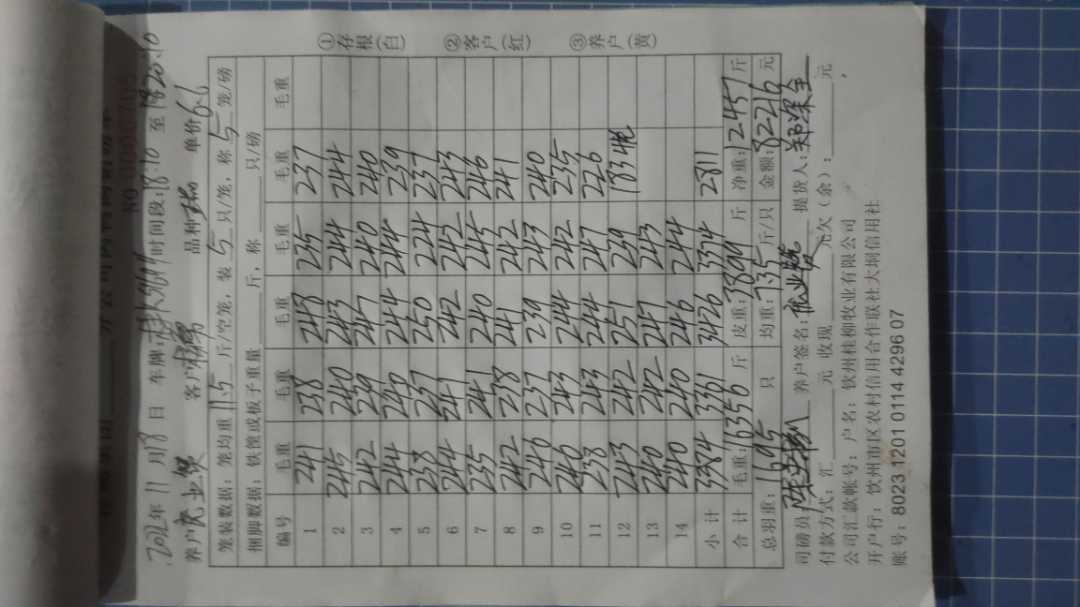 ①存根(白) ②客户(红) ③养户(黄)
NO
2022年11月18日 车牌: 时间段:18:10 至 1820:10
养户 客户 品种 单价6.6
笼装数据: 笼均重 11.5 斤/空笼, 装 5 只/笼, 称 5 笼/磅
捆脚数据: 铁笼或板子重量 斤, 称 只/磅
编号 毛重 毛重 毛重 毛重 毛重 毛重
1 241 238 248 235 237
2 245 240 243 244 244
3 242 239 247 240 240
4 244 240 244 244 239
5 238 227 250 224 237
6 244 241 242 242 243
7 235 241 240 245 246
8 242 238 241 242 241
9 246 237 239 243 240
10 240 243 244 242 235
11 238 243 244 247 226
12 243 242 251 239 183 4
13 240 242 247 243
14 240 240 246 244
小计 3384 3361 3426 3374 2811
合计 毛重:16356 斤 皮重:3899 斤 净重:12457 斤
总羽重:1695 只 均重:7.35 斤/只 金额:82216 元
司磅员: 养户签名: 提货人:
付款方式: 汇 元 收现 元欠(余): 元
公司汇款帐号: 户名: 钦州桂柳牧业有限公司
开户行: 钦州市区农村信用合作联社大垌信用社
账号: 8023 1201 0114 4296 07